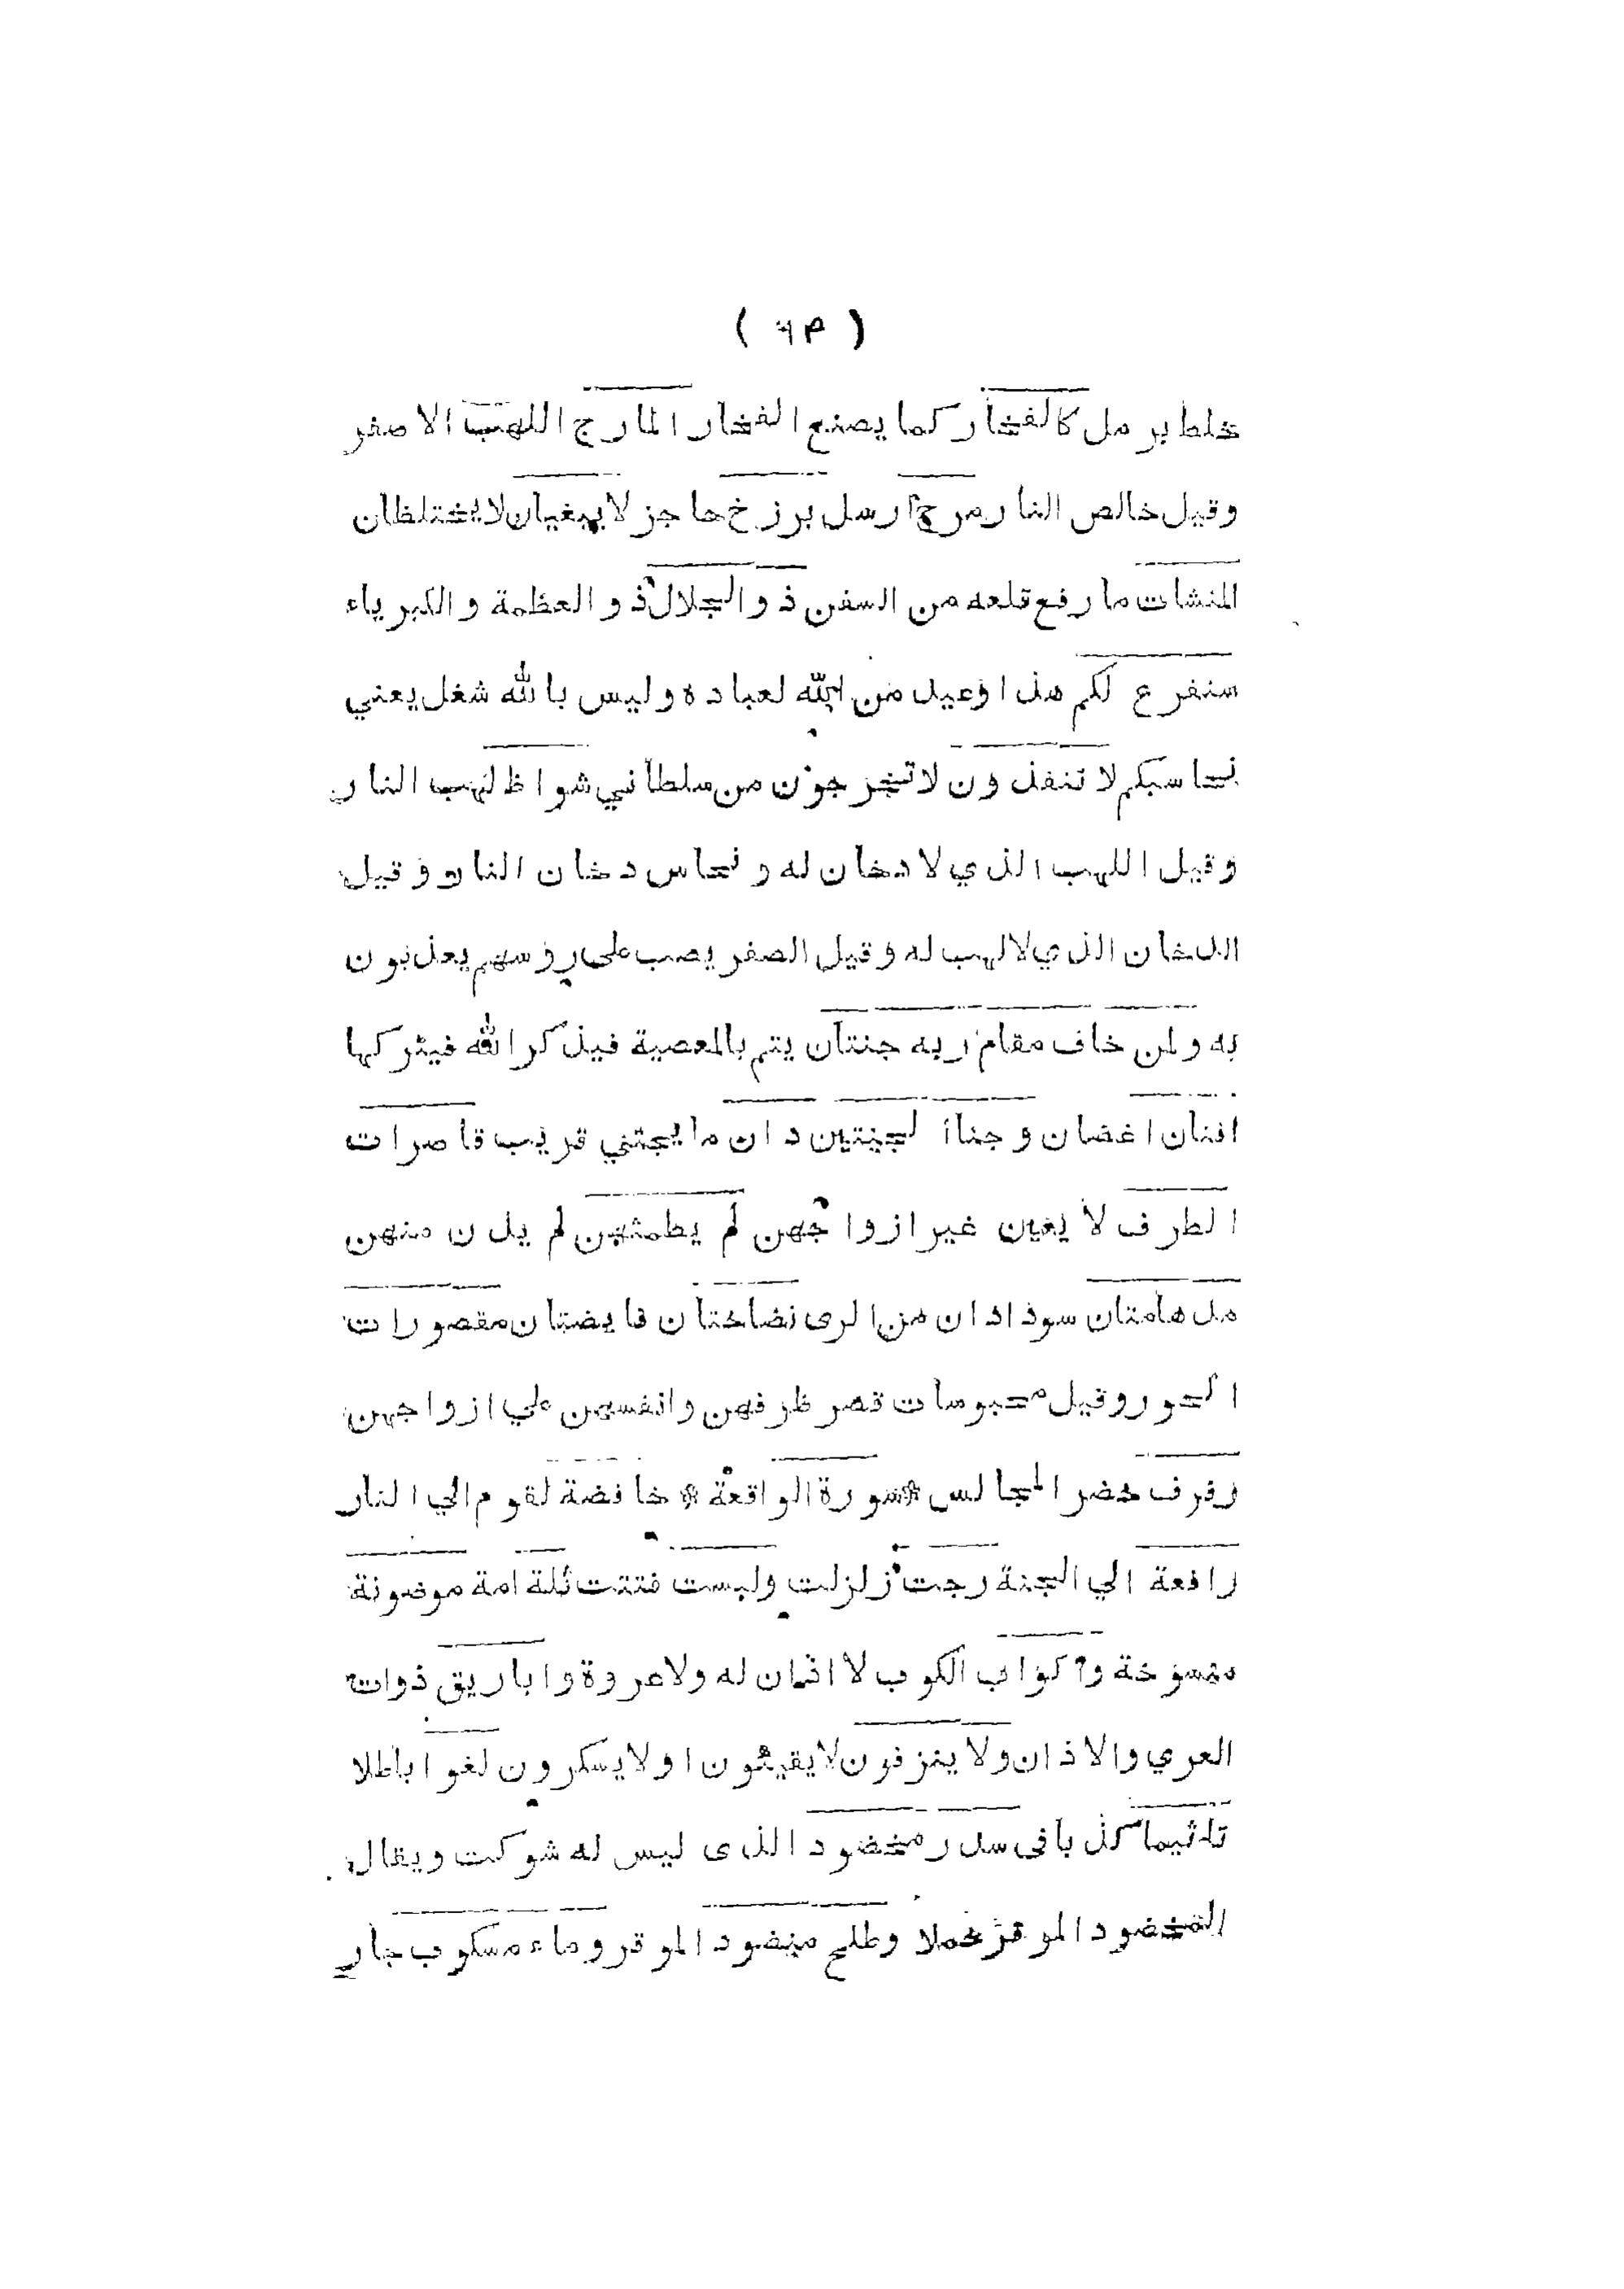 ( ٦٣ )
خلط برمل كالفخار كما يصنع الفخار المارج اللهب الاصفر
وقيل خالص النار مرج ارسل برزخ حاجز لا يبغيان لا يختلطان
المنشات ما رفع قلعه من السفن ذو الجلال ذو العظمة والكبرياء
سنفرغ لكم هذا وعيد من الله لعباده وليس بالله شغل يعني
نحاسبكم لا تنفذون لا تخرجون من سلطاني شواظ لهب النار
وقيل اللهب الذي لا دخان له ونحاس دخان النار وقيل
الدخان الذي لا لهب له وقيل الصفر يصب على رؤسهم يعذبون
به ولمن خاف مقام ربه جنتان يتم بالمعصية فيذكر الله فيتركها
افنان اغصان وجنا الجنتين دان ما يجتني قريب قاصرات
الطرف لا يغين غير ازواجهن لم يطمثهن لم يدن منهن
مدهامتان سودادان من الرى نضاختان فايضتان مقصورات
الحور وقيل محبوسات قصر طرفهن وانفسهن علي ازواجهن
رفرف خضر المجالس * سورة الواقعة * خافضة لقوم الي النار
رافعة الي الجنة رجت زلزلت وبست فتتت ثلة امة موضونة
منسوخة واكواب الكوب لا اذان له ولا عروة واباريق ذوات
العري والاذان ولا ينزفون لا يقيئون اولا يسكرون لغوا باطلا
تاثيما كذبا فى سدر مخضود الذى ليس له شوكت ويقال
المخضود الموقر حملا وطلح منضود الموقر وماء مسكوب جار